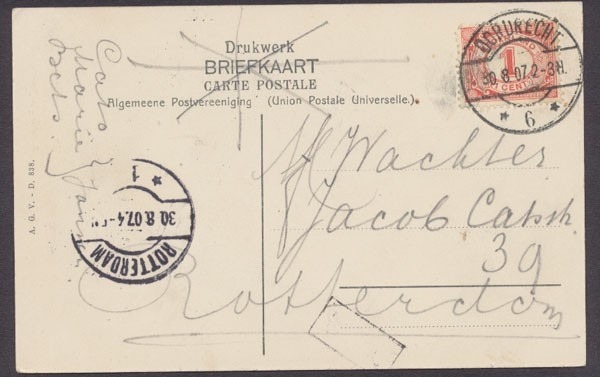 Drukwerk
BRIEFKAART
CARTE POSTALE
Algemeene Postvereeniging (Union Postale Universelle.)
DORDRECHT
30.8.07.2-3N.
6
1
CENT
Cato
Marie
Jans
Bets.
A. G. V. - D. 838.
1
30.8.07.4-5N
ROTTERDAM
Wachter
Jacob Catsstr
39
Rotterdam